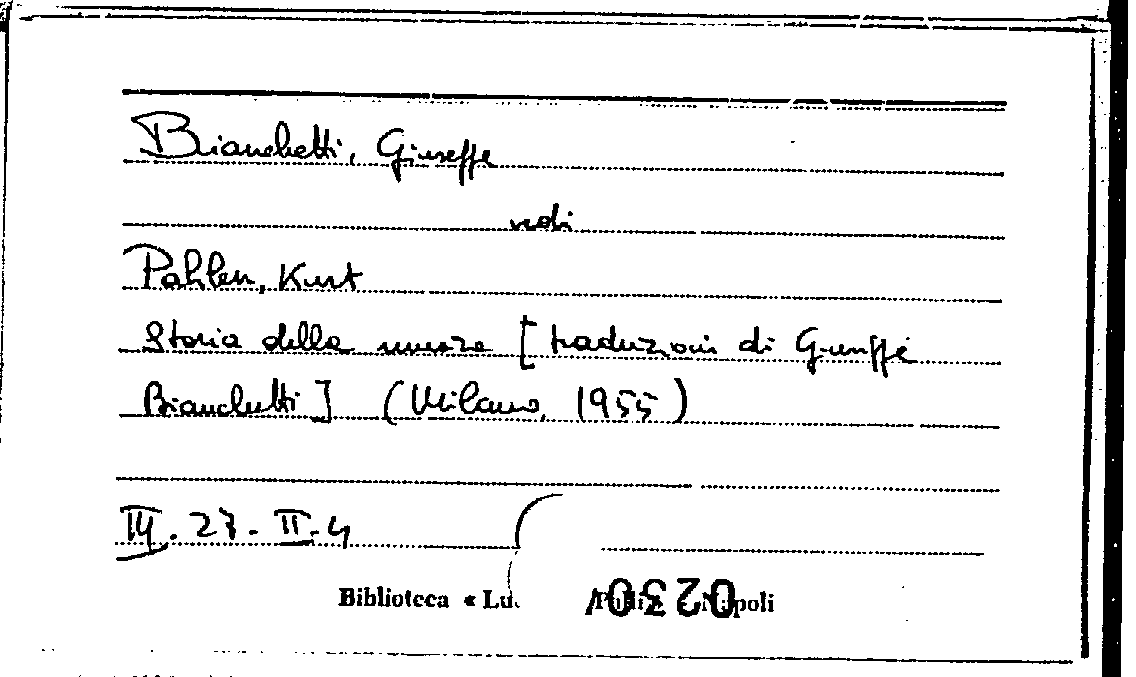 Bianchetti, Giuseppe
vedi
Pahlen, Kurt
Storia della musica [traduzioni di Giuseppe
Bianchetti] (Milano, 1955)
III. 27. II. 4
Biblioteca « Lu. Napoli